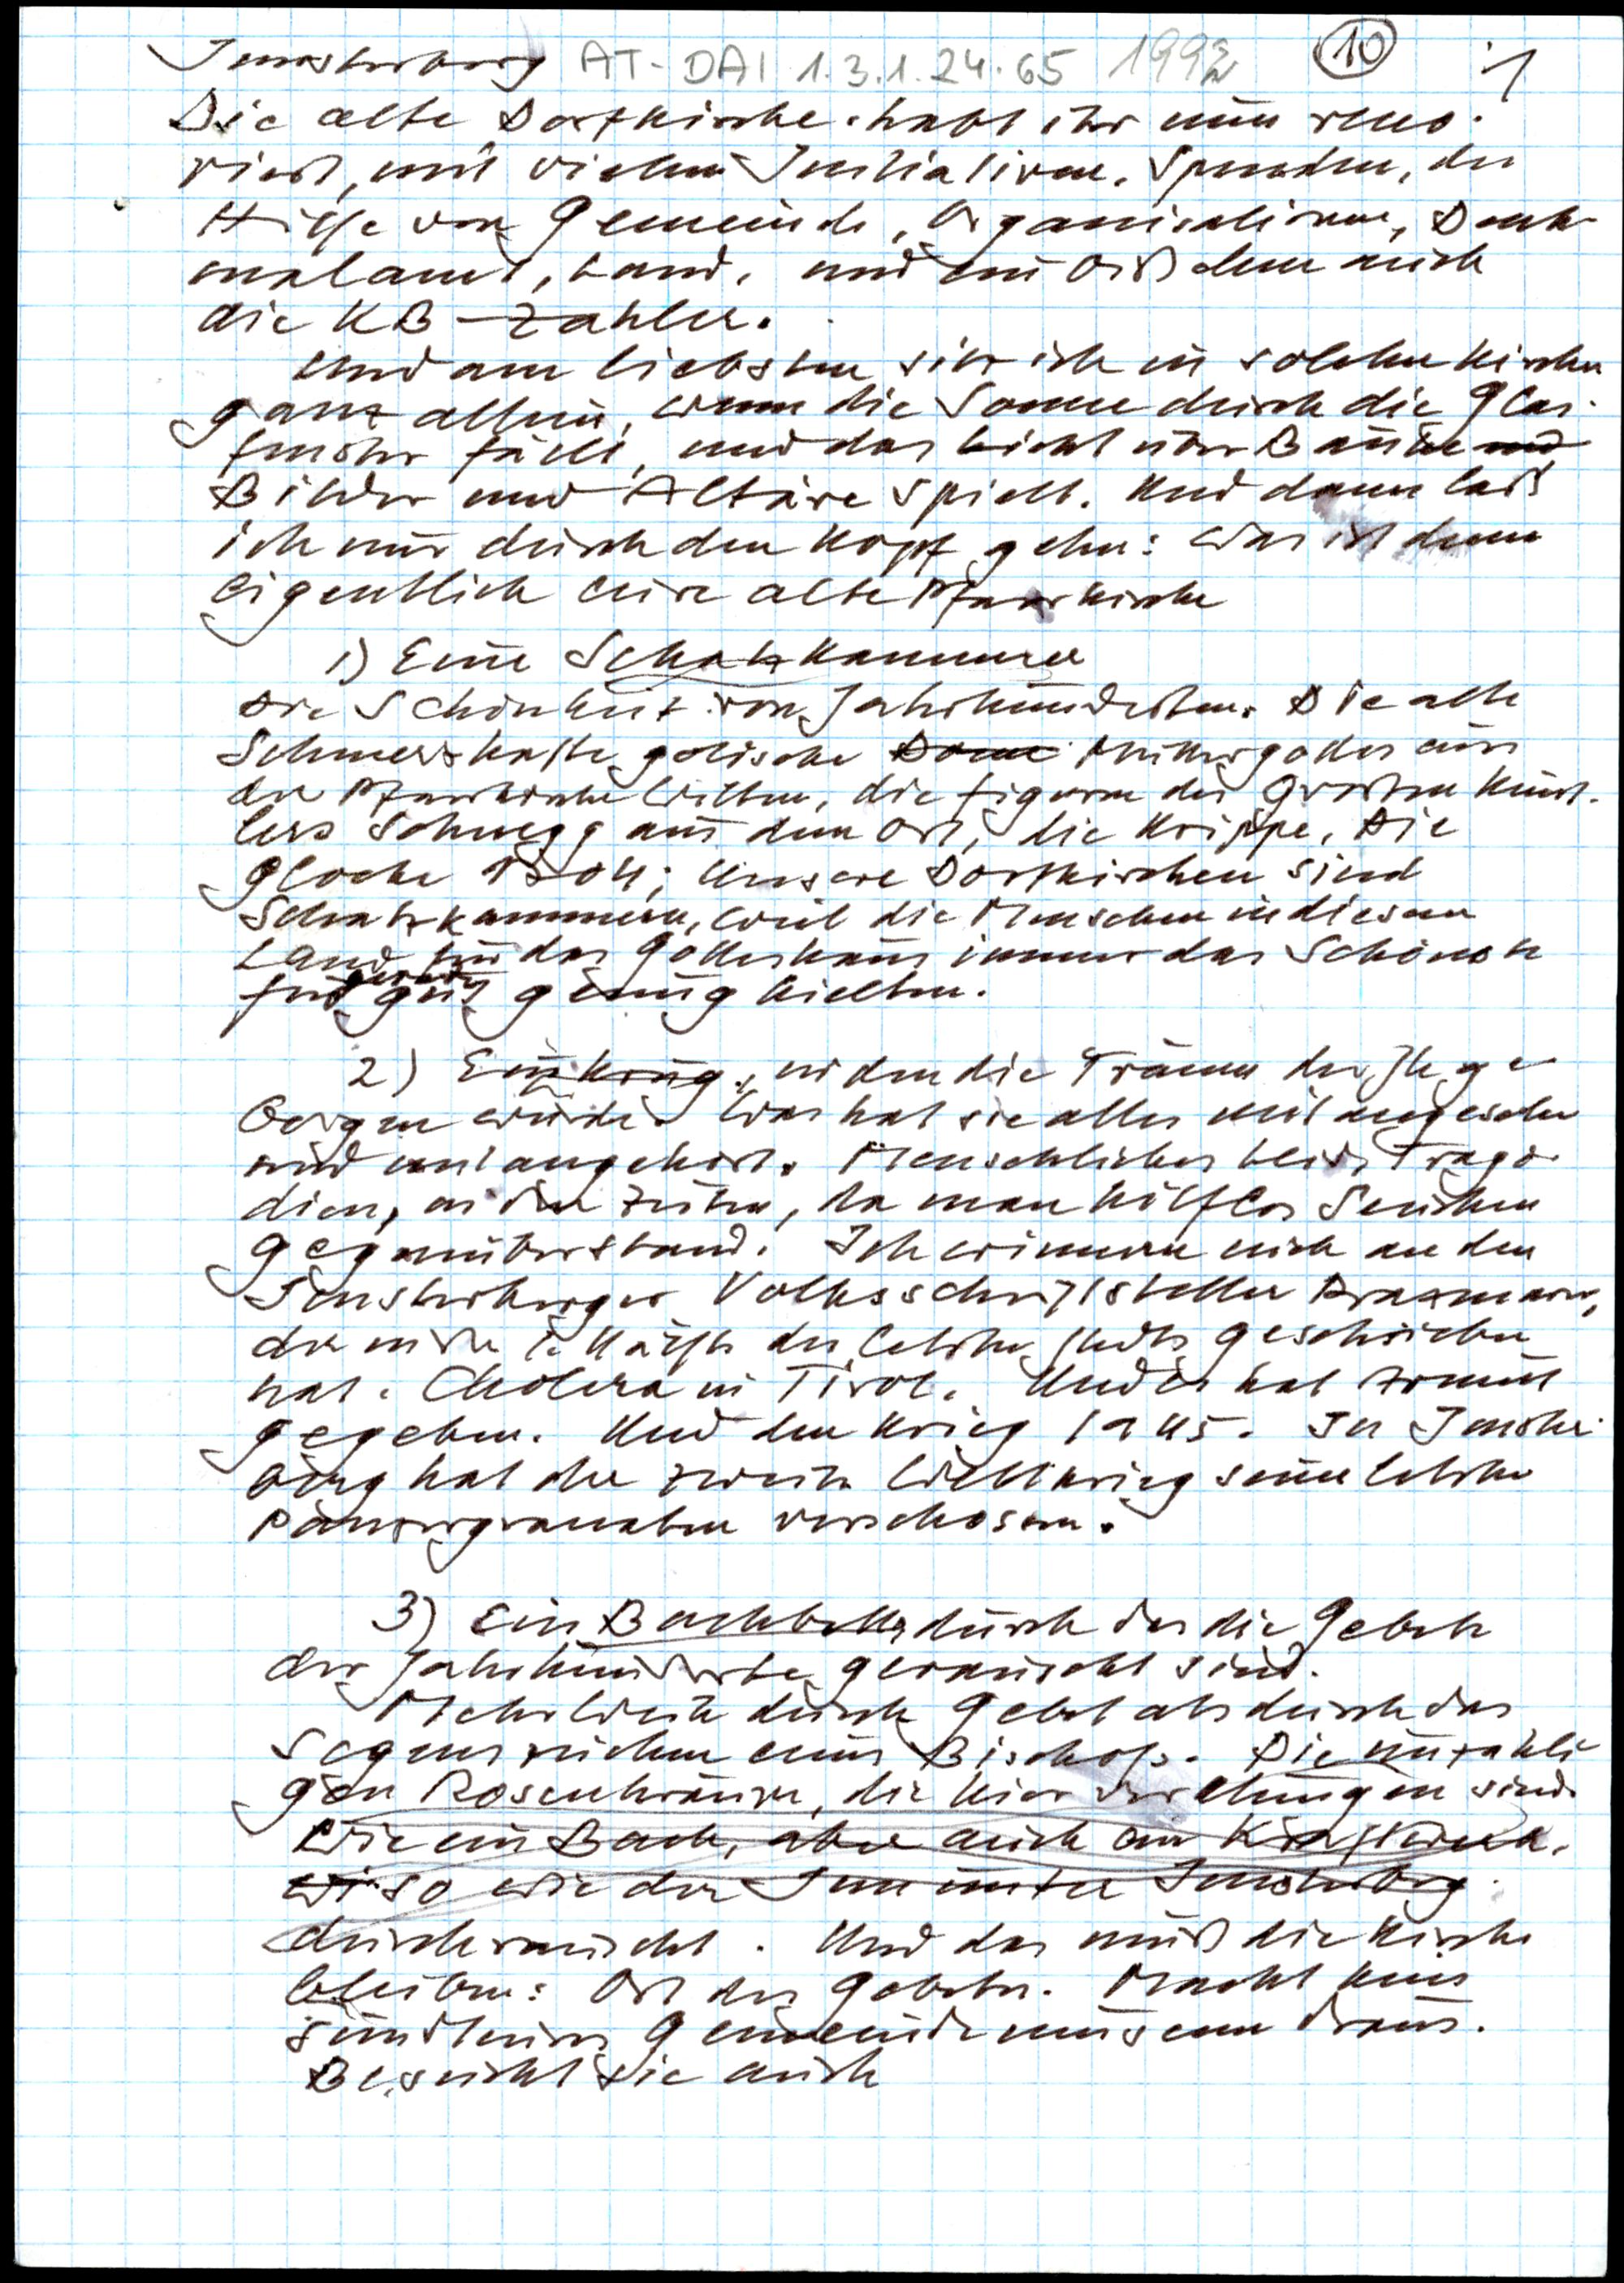 Imsterberg AT-DAI 1.3.1.24.65 1992 10 1
Die alte Dorfkirche habt ihr nun reno-
viert, mit vielen Initiativen, Spenden, der
Hilfe von Gemeinde, Organisationen, Denk-
malamt, Land, und außerdem auch
die KB-Zahler.
Und am liebsten sitz ich in solchen Kirchen
ganz allein, wenn die Sonne durch die Glas-
fenster fällt, und das Licht über Bänke und
Bilder und Altäre spielt. Und dann laß
ich mir durch den Kopf gehn: Was ist denn
eigentlich eure alte Pfarrkirche
1) Eine Schatzkammer
Die Schönheit von Jahrhunderten. Die alte
Schmerzhafte gotische Muttergottes aus
der Pfarrkirche Wilten, die Figuren des großen Künst-
lers Schnegg aus dem Ort, die Krippe, die
Glocke; Unsere Dorfkirchen sind
Schatzkammern, weil die Menschen in diesem
Land für das Gotteshaus immer das Schönste
für gerade gut genug hielten.
2) Ein Krug, in den die Tränen der Jh ge-
borgen wurden. Was hat sie alles mit angesehn
und mit angehört. Menschliches Leid, Tragö-
dien, in den Zeiten, da man hilflos Seuchen
gegenüberstand. Ich erinnere mich an den
Imsterberger Volksschriftsteller Praxmarer,
der in der 1. Hälfte des letzten Jhdts geschrieben
hat. Cholera in Tirol. Und es hat Armut
gegeben. Und den Krieg 1945. In Imster-
berg hat der zweite Weltkrieg seine letzten
Panzergranaten verschossen.
3) Ein Bachbett, durch das die Gebete
der Jahrhunderte gerauscht sind.
Mehr Weihe durch Gebet als durch das
Segenszeichen eines Bischofs. Die unzähli-
gen Rosenkränze, die hier verklungen sind.
Wie ein Bach, aber auch ein Kraftwerk.
wi so wie der Inn unter Imsterberg
durchrauscht. Und das muß die Kirche
bleiben: Ort des Gebetes. Macht kein
sündteures Gemeindemuseum draus.
Besucht sie auch